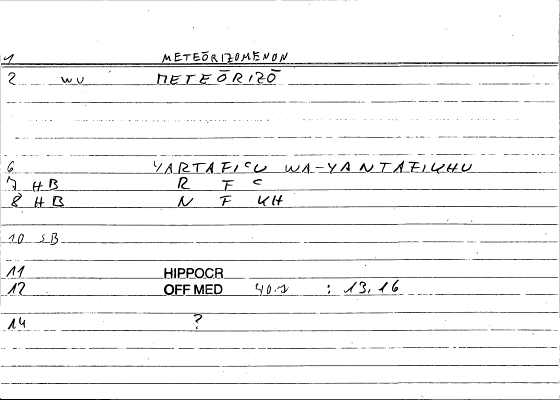 1 METEŌRIZOMENON
2 WV METEŌRIZŌ
6 YARTAFIC U WA-YANTAFIKHU
7 HB R F C
8 HB N F KH
10 SB
11 HIPPOCR
12 OFF MED 40.1 : 13, 16
14 ?